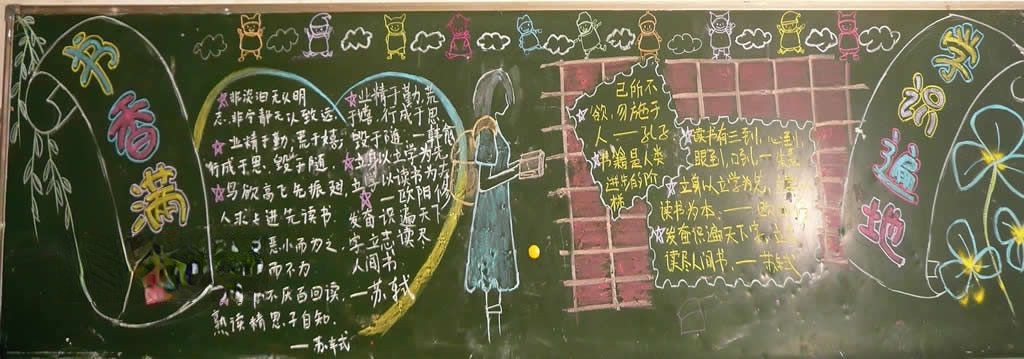 书香满
非淡泊无以明
志,非宁静无以致远
业精于勤,荒于嬉;
行成于思,毁于随
鸟欲高飞先振翅
人求上进先读书.
恶小而为之,
而不为
不厌百回读,
熟读精思子自知.
——苏轼
业精于勤,荒
于嬉,行成于思
毁于随,—韩愈
立身以立学为先
立 以读书为
—欧阳修
发奋识遍天下
字,立志读尽
人间书
—苏轼
己所不
欲,勿施于
人——孔子
书籍是人类
进步的阶
梯
读书有三到,心到,
眼到,口到,一
立身以立学为先,
读书为本.——
发奋识遍天下字,立
读尽人间书.——苏轼
学识遍地